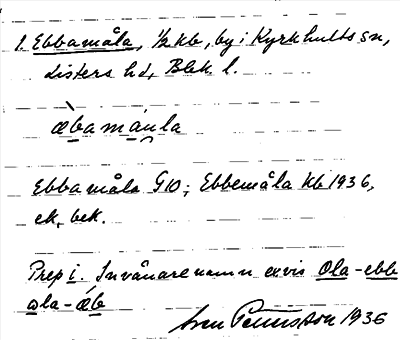 1. Ebbamåla, 1/2 kb, by i Kyrkhults sn,
Listers hd, Blek. l.
æ̀bamåu̯la
Ebbamåla GIO; Ebbemåla kb 1936,
ek, bek.
Prep i. Invånarenamn exvis Ola-ebb
ola-ǽb
Sven Benson 1936